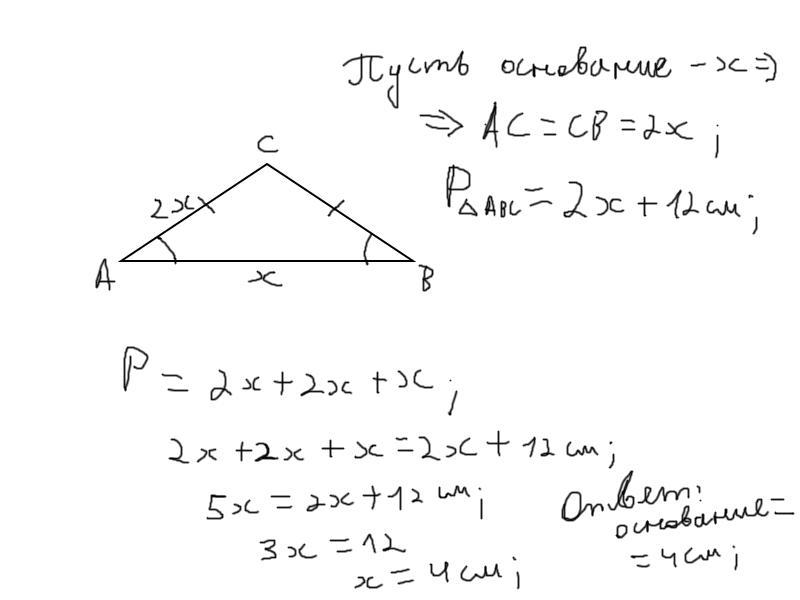 Пусть основание - x ⇒
⇒ AC = CB = 2x ;
P△ABC = 2x + 12 см ;
C
2x
A
x
B
P = 2x + 2x + x ;
2x + 2x + x = 2x + 12 см ;
5x = 2x + 12 см ;
3x = 12
x = 4 см ;
Ответ:
основание =
= 4 см ;